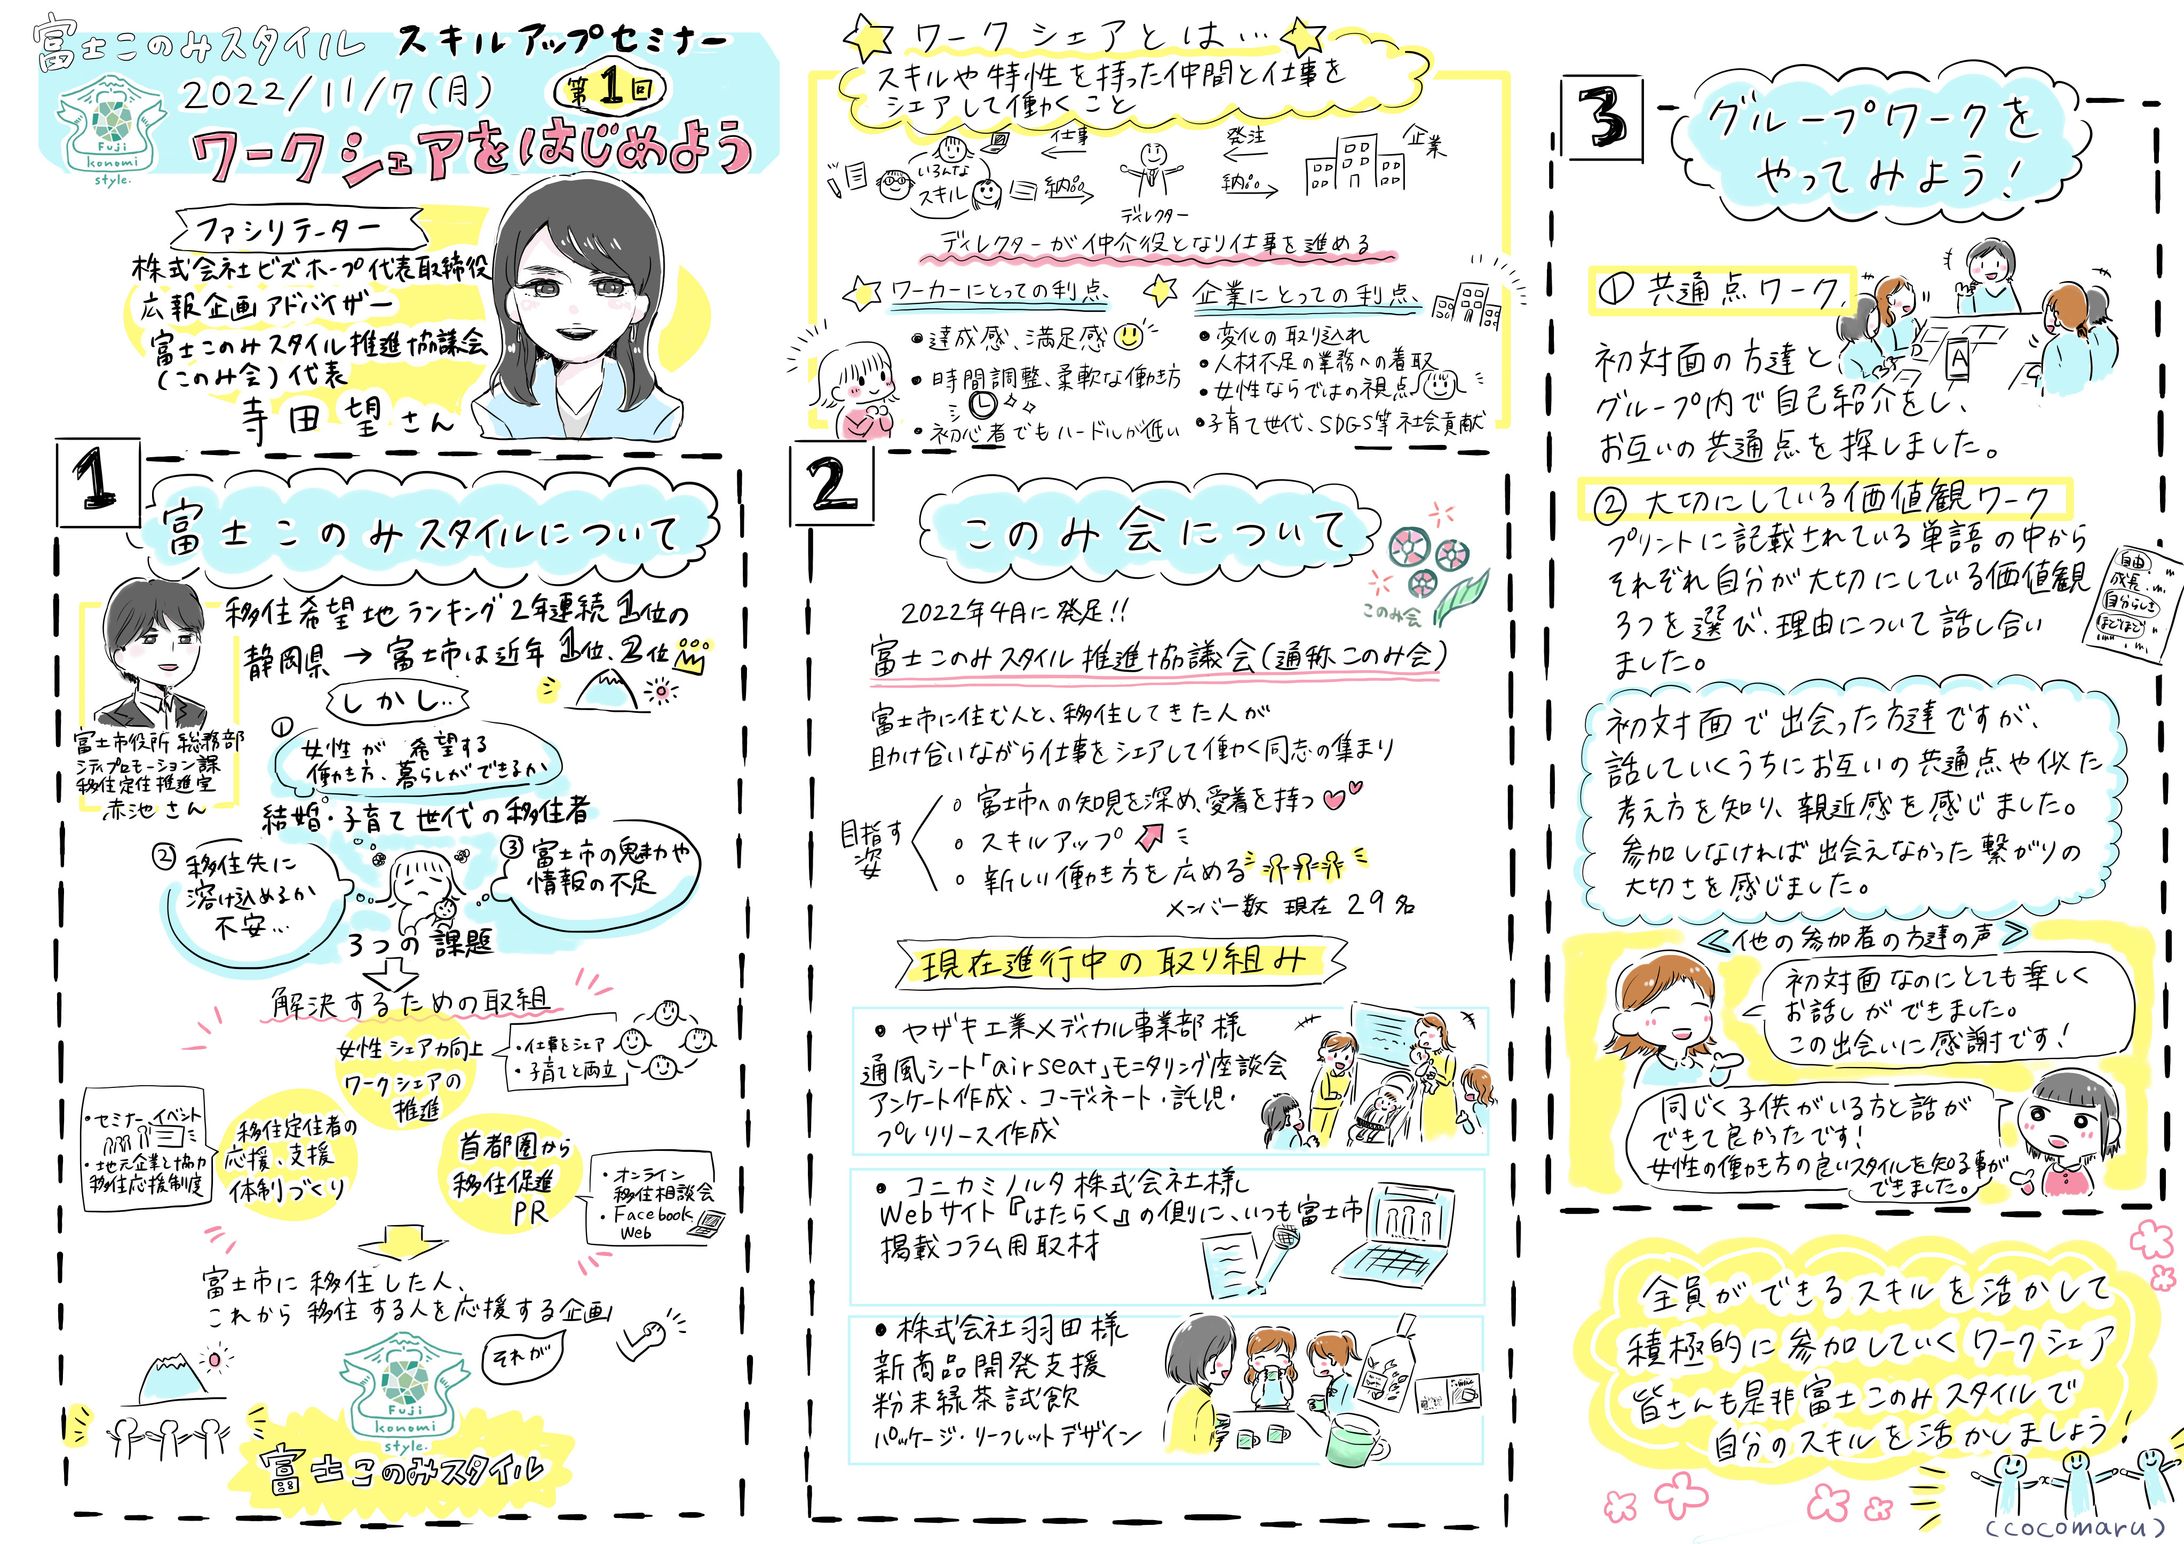 富士このみスタイル スキルアップセミナー
2022/11/7(月) 第1回
ワークシェアをはじめよう
Fuji
konomi
style.
ファシリテーター
株式会社ビズホープ代表取締役
広報企画アドバイザー
富士このみスタイル推進協議会
(このみ会)代表
寺田 望さん
ワークシェアとは…
スキルや特性を持った仲間と仕事を
シェアして働くこと
いろんな
スキル
仕事
納品
ディレクター
発注
納品
企業
ディレクターが仲介役となり仕事を進める
ワーカーにとっての利点
•達成感、満足感
•時間調整、柔軟な働き方
•初心者でもハードルが低い
企業にとっての利点
•変化の取り込れ
•人材不足の業務への着取
•女性ならではの視点
•子育て世代、SDGS等社会貢献
1
富士このみスタイルについて
移住希望地ランキング2年連続1位の
静岡県→富士市は近年1位、2位
富士市役所 総務部
シティプロモーション課
移住定住推進室
赤池さん
しかし..
①
女性が希望する
働き方、暮らしができるか
結婚・子育て世代の移住者
②移住先に
溶け込めるか
不安…
③富士市の魅力や
情報の不足
3つの課題
解決するための取組
女性シェア力向上
ワークシェアの
推進
・仕事をシェア
・子育てと両立
・セミナー、イベント
・地元企業と協力
移住応援制度
移住定住者の
応援、支援
体制づくり
首都圏から
移住促進
PR
・オンライン
移住相談会
・Facebook
Web
富士市に移住した人、
これから移住する人を応援する企画
それが
Fuji
konomi
style.
富士このみスタイル
2
このみ会について
このみ会
2022年4月に発足!!
富士このみスタイル推進協議会(通称このみ会)
富士市に住む人と、移住してきた人が
助け合いながら仕事をシェアして働く同志の集まり
目指す
姿
○富士市への知見を深め、愛着を持つ
○スキルアップ
○新しい働き方を広める
メンバー数 現在 29名
現在進行中の取り組み
•ヤザキ工業メディカル事業部様
通風シート「airseat」モニタリング座談会
アンケート作成・コーディネート・託児・
プレリリース作成
•コニカミノルタ株式会社様
Webサイト『はたらく』の側に、いつも富士市
掲載コラム用取材
•株式会社羽田様
新商品開発支援
粉末緑茶試飲
パッケージ・リーフレットデザイン
3
グループワークを
やってみよう!
①共通点ワーク
A
初対面の方達と
グループ内で自己紹介をし、
お互いの共通点を探しました。
②大切にしている価値観ワーク
プリントに記載されている単語の中から
それぞれ自分が大切にしている価値観
3つを選び、理由について話し合い
ました。
自由
成長
自分らしさ
ほどほど
初対面で出会った方達ですが、
話していくうちにお互いの共通点や似た
考え方を知り、親近感を感じました。
参加しなければ出会えなかった繋がりの
大切さを感じました。
≪他の参加者の方達の声≫
初対面なのにとても楽しく
お話しができました。
この出会いに感謝です!
同じく子供がいる方と話が
できて良かったです!
女性の働き方の良いスタイルを知る事が
できました。
全員ができるスキルを活かして
積極的に参加していくワークシェア
皆さんも是非富士このみスタイルで
自分のスキルを活かしましょう!
(cocomaru)